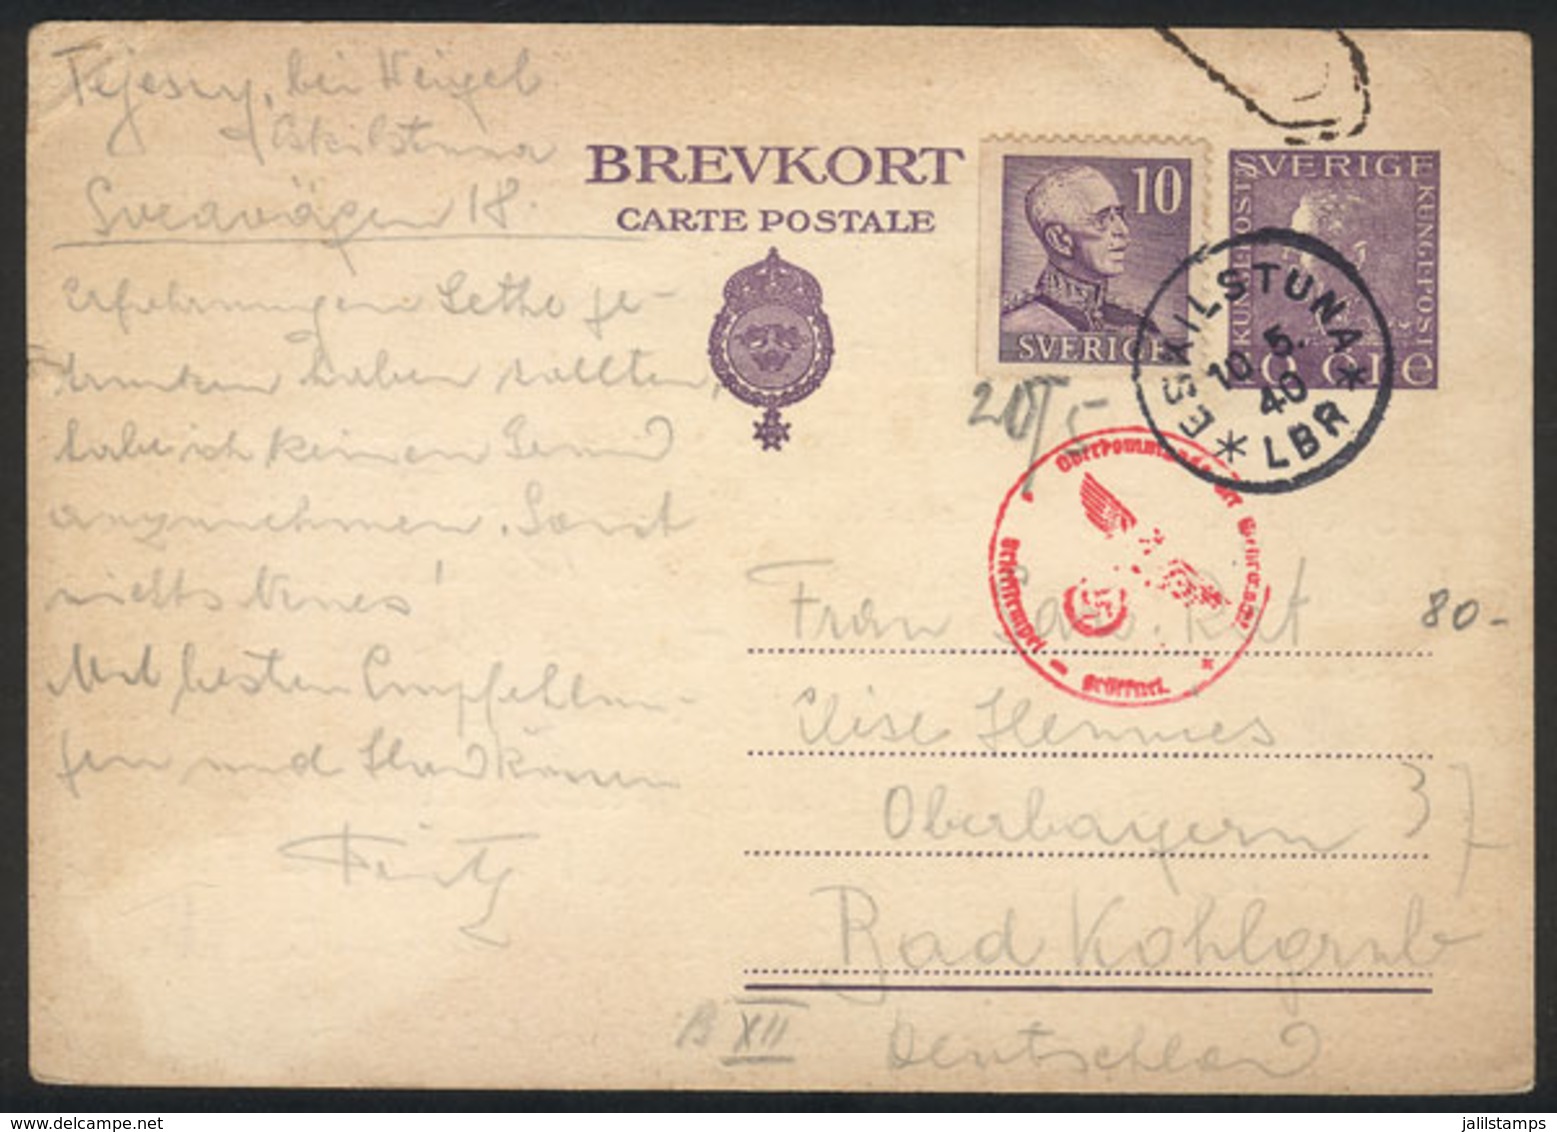 bei Weigel
Eskilstuna
Sveavägen 18.
BREVKORT
CARTE POSTALE
10
SVERIGE
SVERIGE
KUNGL POST
KUNGL POST
10 ÖRE
ESKILSTUNA
10 5.
40
* LBR *
20/5
Oberkommando der Wehrmacht
Briefstempel
geöffnet.
Erfahrungen
haben sollten,
habe ich keinen
anzunehmen. Sonst
nichts Neues!
Mit besten Empfehlun-
gen und Handküssen
Fritz
Frau San. Rat
Elise Hemmes
80-
Oberbayern
37
Bad Kohlgrub
B XII
Deutschland
jalilstamps